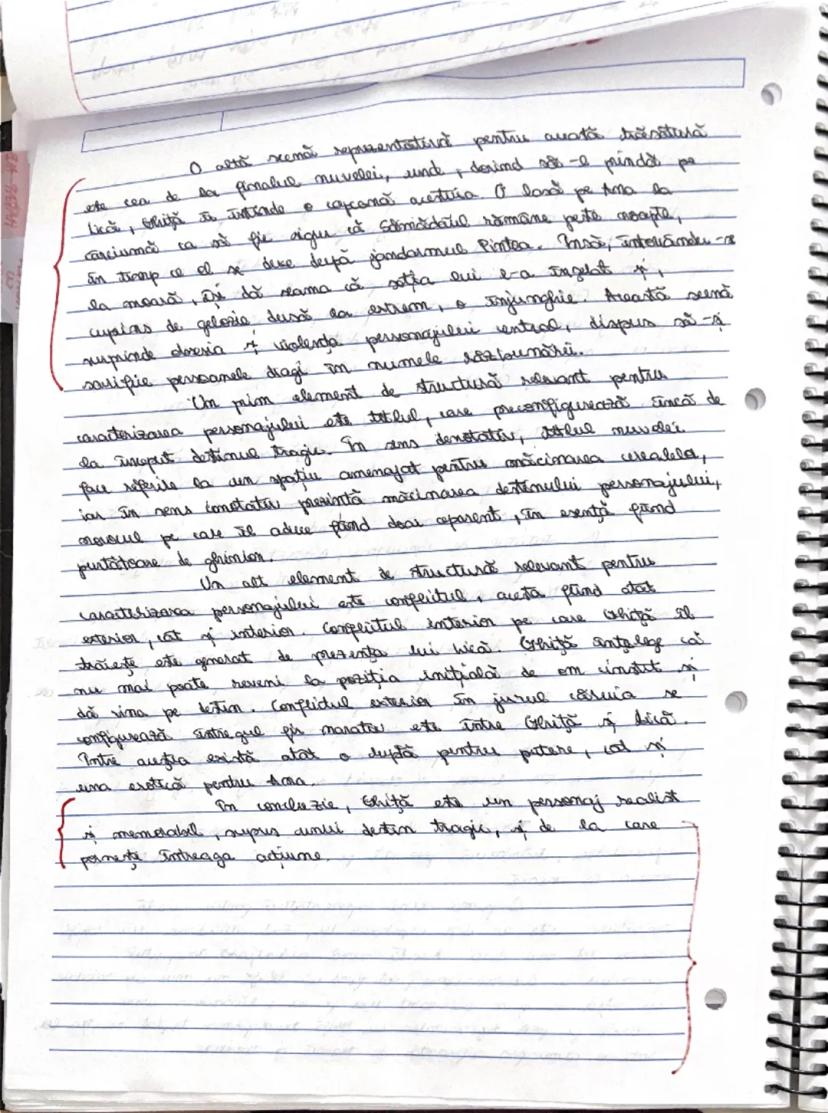 O altă scenă reprezentativă pentru această trăsătură
este cea de la finalul nuvelei, unde, dorind să-l prindă pe
Lică, Ghiță îi întinde o capcană acestuia. O lasă pe Ana la
cârciumă ca să fie sigur că Sămădăul rămâne peste noapte,
în timp ce el se duce după jandarmul Pintea. Însă, întorcându-se
la moară, își dă seama că soția lui l-a înșelat și,
cuprins de gelozie dusă la extrem, o înjunghie. Această scenă
surprinde obsesia și violența personajului central, dispus să-și
sacrifice persoanele dragi în numele răzbunării.
Un prim element de structură relevant pentru
caracterizarea personajului este titlul, care preconfigurează încă de
la început destinul tragic. În sens denotativ, titlul nuvelei
face referire la un spațiu amenajat pentru măcinarea cerealelor,
iar în sens conotativ prezintă măcinarea destinului personajului,
norocul pe care îl aduce fiind doar aparent, în esență fiind
purtătoare de ghinion.
Un alt element de structură relevant pentru
caracterizarea personajului este conflictul, acesta fiind atât
exterior, cât și interior. Conflictul interior pe care Ghiță îl
trăiește este generat de prezența lui Lică. Ghiță înțeleg că
nu mai poate reveni la poziția inițială de om cinstit și
dă vina pe destin. Conflictul exterior în jurul căruia se
configurează întregul fir narativ este între Ghiță și Lică.
Între aceștia există atât o luptă pentru putere, cât și
una erotică pentru Ana.
În concluzie, Ghiță este un personaj realist
și memorabil, supus unui destin tragic, și de la care
pornește întreaga acțiune.